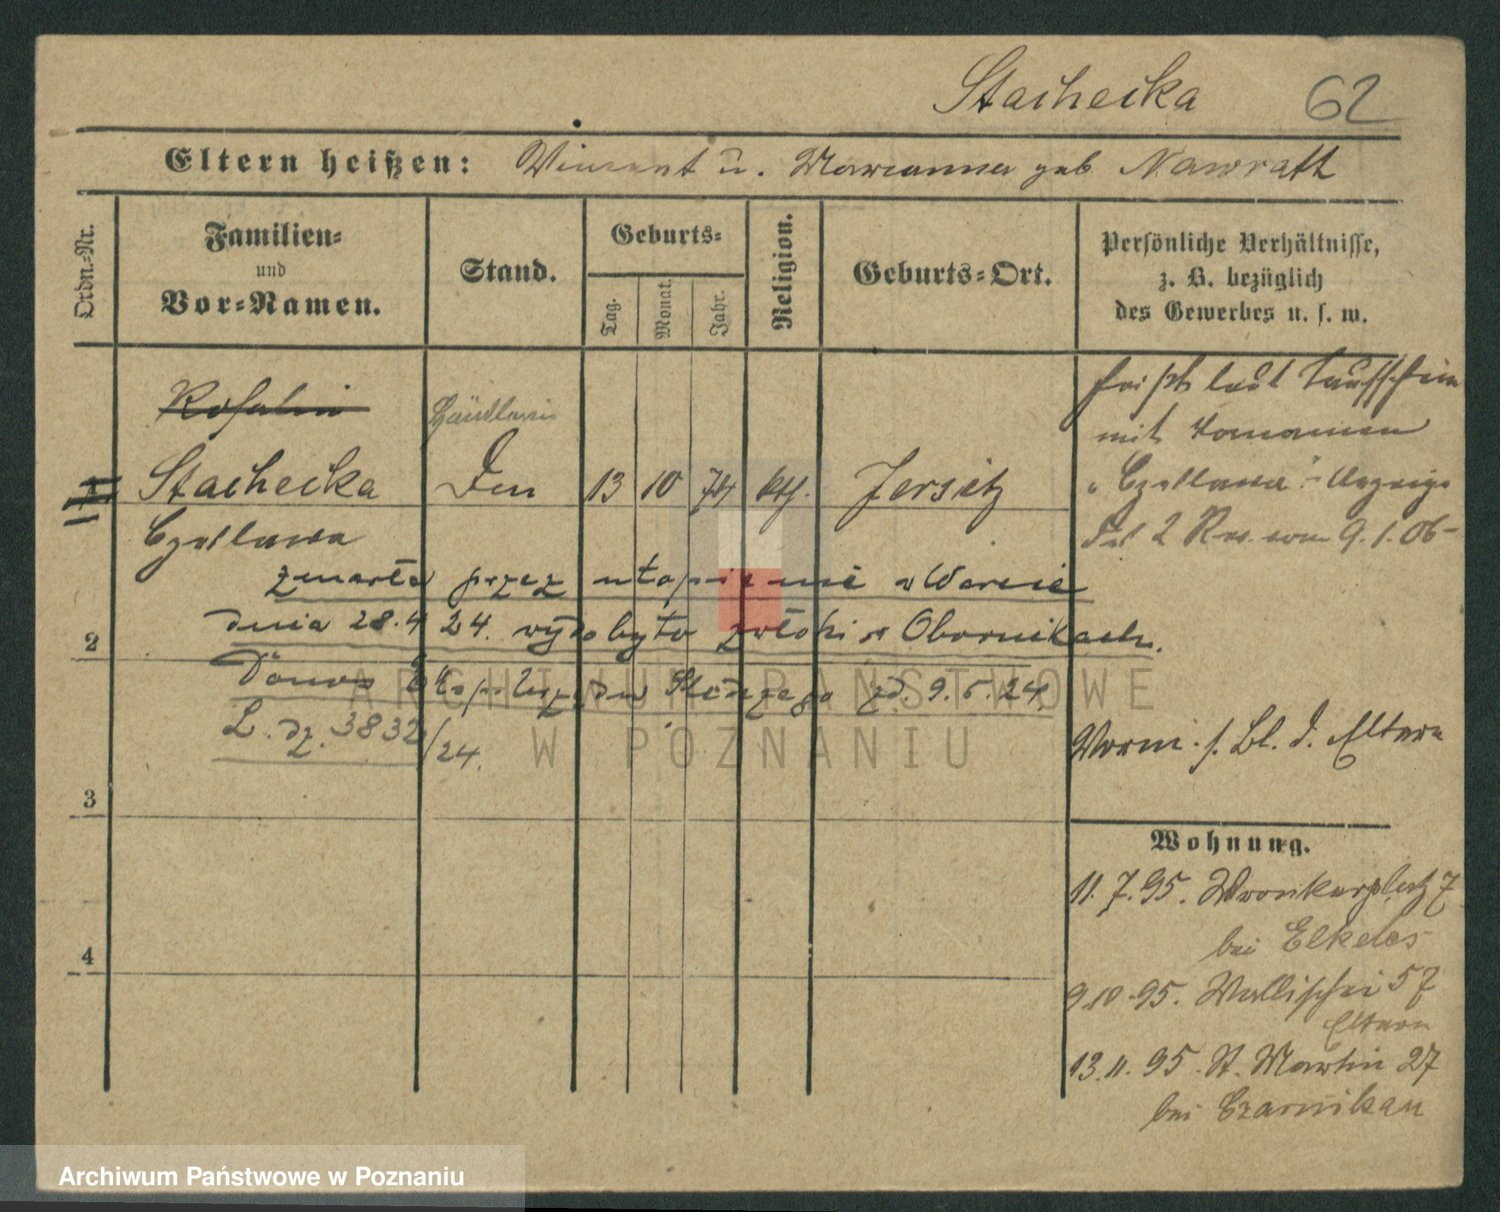 Stachecka 62
Eltern heißen: Vincent u. Marianna geb Nawratt
Ordn.-Nr.
Familien-
und
Vor-Namen.
Stand.
Geburts-
Tag.
Monat.
Jahr.
Religion.
Geburts-Ort.
Persönliche Verhältnisse,
z. B. bezüglich
des Gewerbes u. s. w.
Rosalie
Händlerin
1 Stachecka 13 10 74 kth. Jersitz
Czeslawa
heißt laut Taufschein
mit Vornamen
"Czeslawa" - Anzeige
2 Rev. vom 9.1.06-
zmarła przez utopienie w Warcie
dnia 28.4 24. wydobyto zwłoki w Obornikach.
2
Donos Urzędu Śledczego zd. 9.5.24.
L. dz. 3832/24.
Vorm. s. Bl. d. Eltern
3
4
Wohnung.
11.7.95. Wronkerplatz 7
bei Elkeles
9.10.95. Wallischei 57
Eltern
13.11.95. St. Martin 27
bei Czarnikau
ARCHIWUM PAŃSTWOWE
W POZNANIU
Archiwum Państwowe w Poznaniu